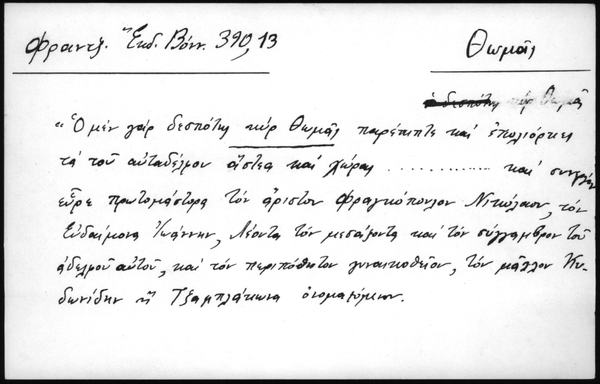 Φραντζ. Ἔκδ. Βόνν. 390, 13
Θωμᾶς
ὁ δεσπότης κὺρ Θωμᾶς
"Ὁ μὲν γὰρ δεσπότης κὺρ Θωμᾶς παρέπιπτε καὶ ἐπολιόρκει
τὰ τοῦ αὐταδέλφου ἄστεα καὶ χώρας ............ καὶ
εὗρε πρωτομάστορα τὸν ἄριστον Φραγκόπουλον Νικόλαον, τὸν
Εὐδαίμονα Ἰωάννην, Λέοντα τὸν μεσάζοντα καὶ τὸν σύγγαμβρον τοῦ
ἀδελφοῦ αὐτοῦ, καὶ τὸν περιπόθητον γυναικοθεῖον, τὸν μᾶλλον Κυ-
δωνίδην ἢ Τζαμπλάκωνα ὀνομαζόμενον.